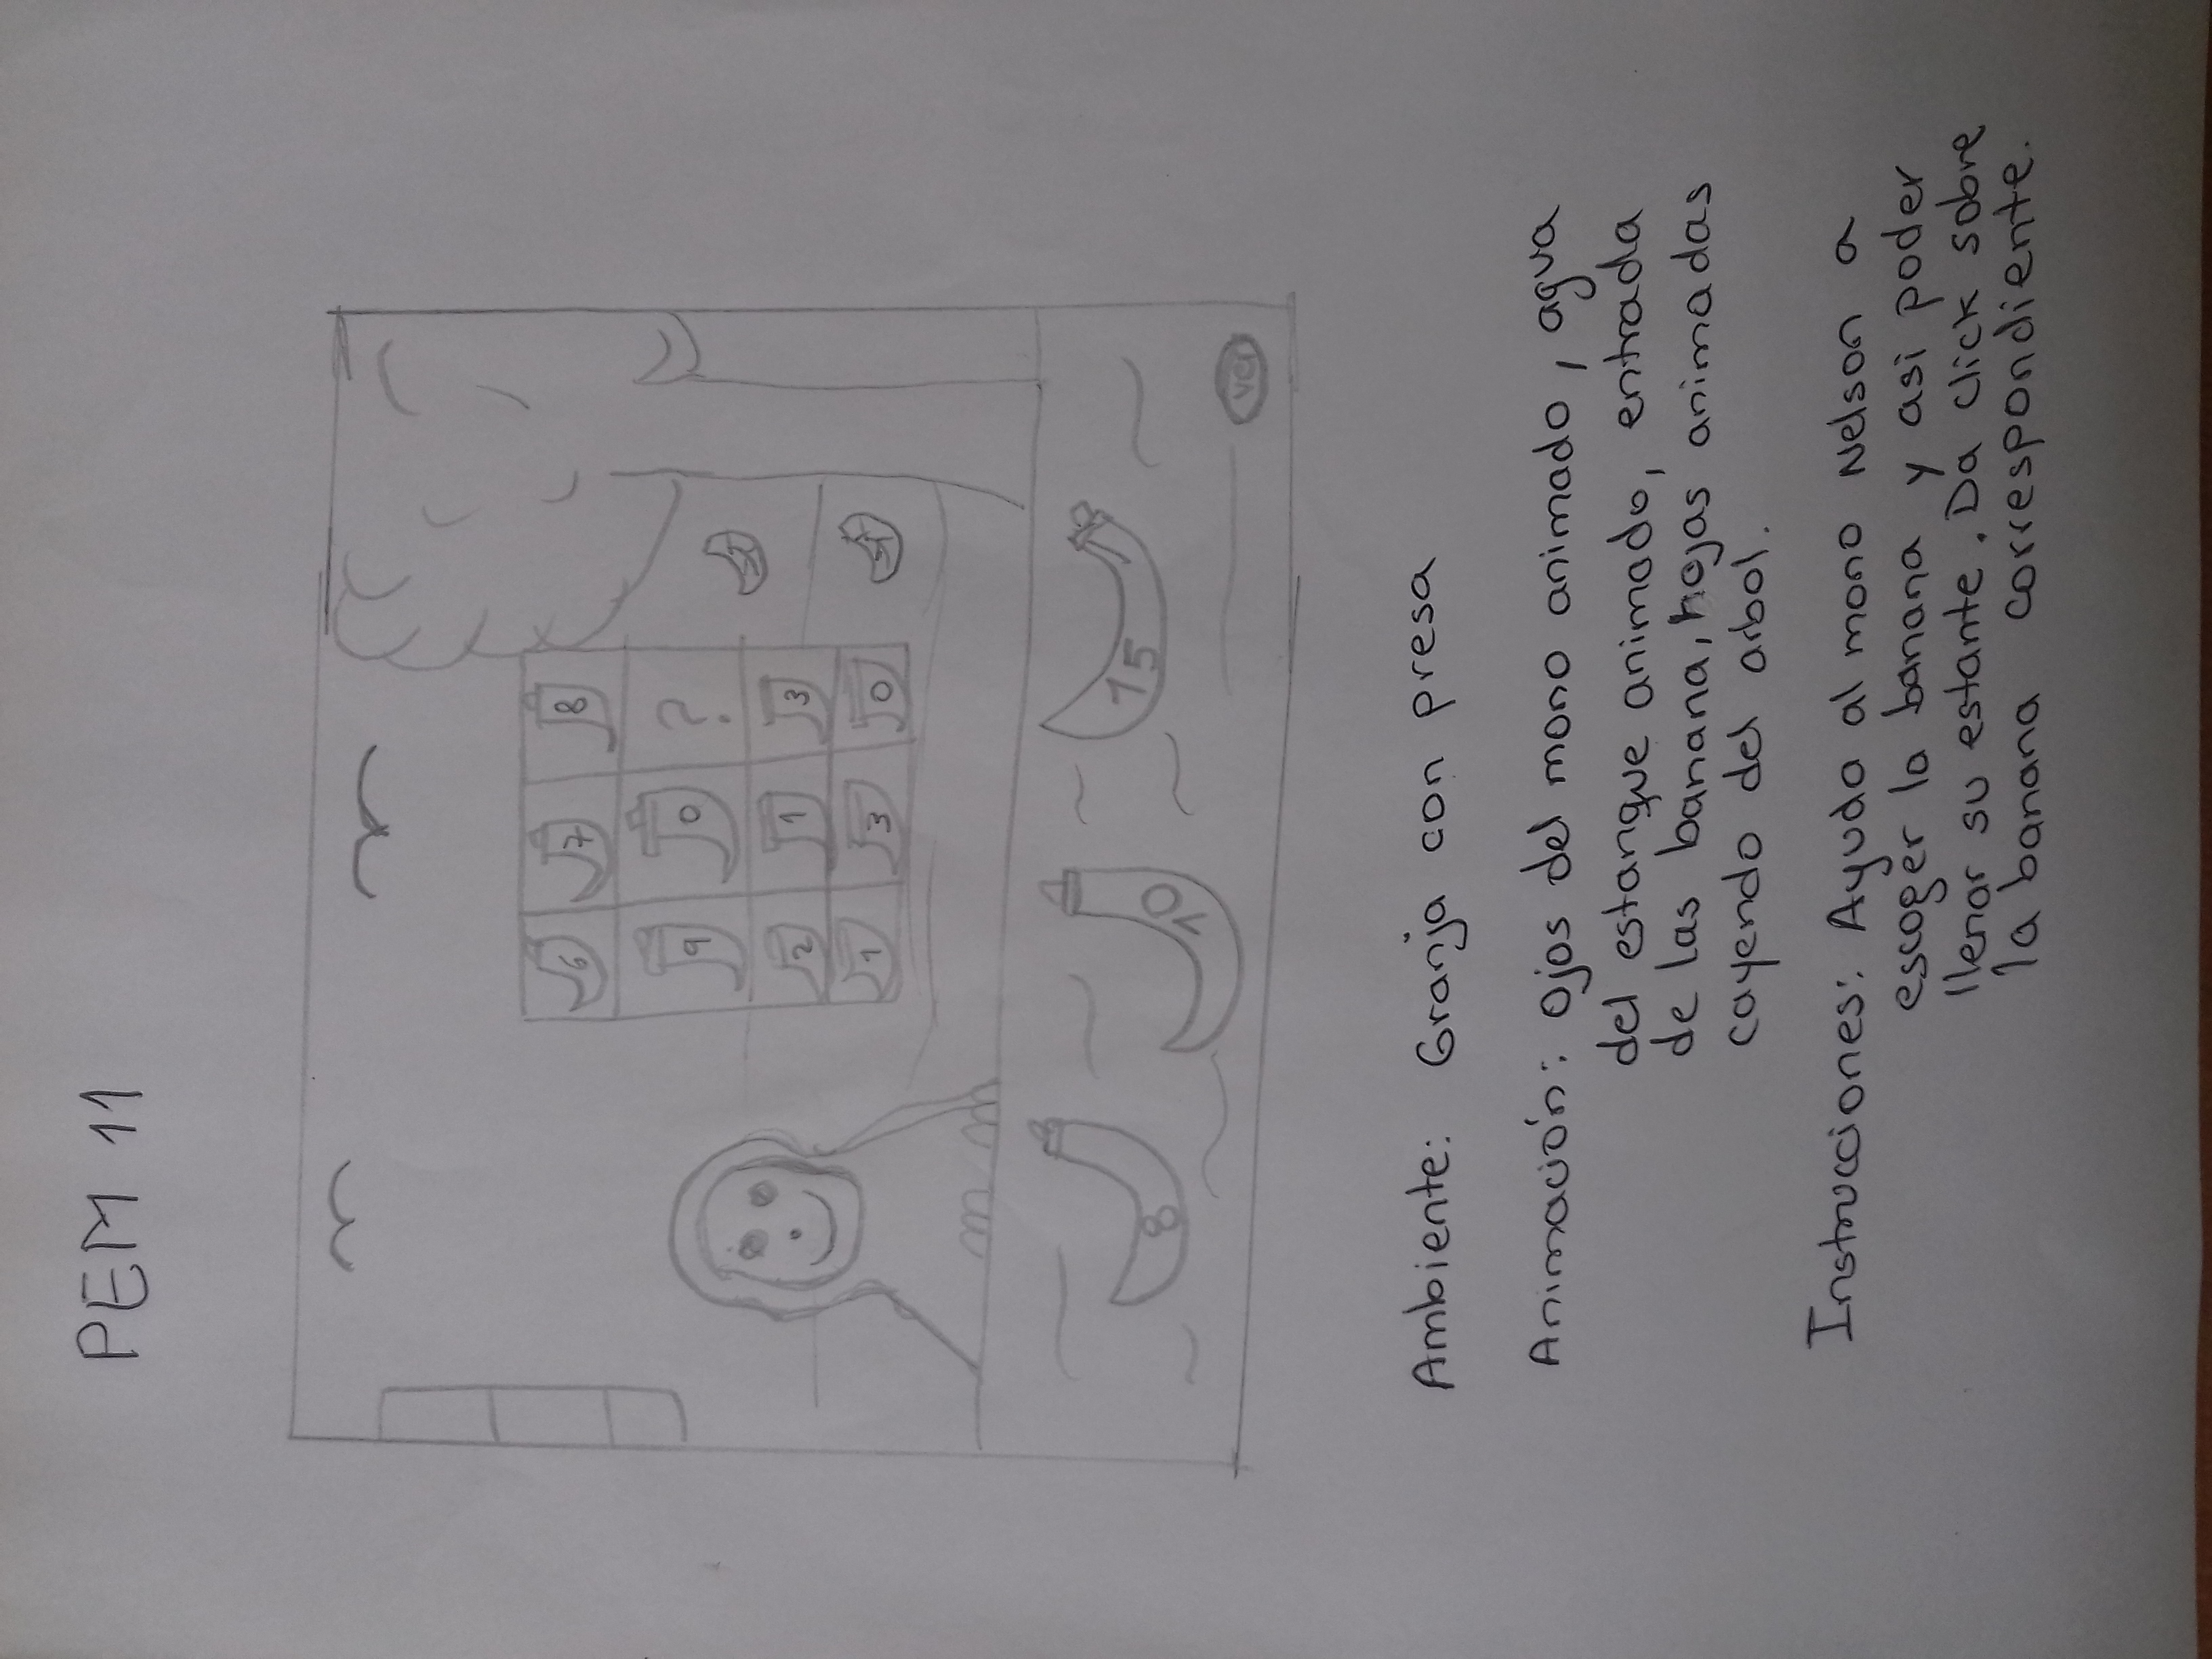 PEM 11
6 7 8
9 0 ?
2 1 3
1 3 0
8 10 15
ver
Ambiente: Granja con presa
Animación: Ojos del mono animado, agua
del estanque animado, entrada
de las banana, hojas animadas
cayendo del arbol.
Instrucciones: Ayuda al mono Nelson a
escoger la banana y asi poder
llenar su estante. Da click sobre
la banana correspondiente.